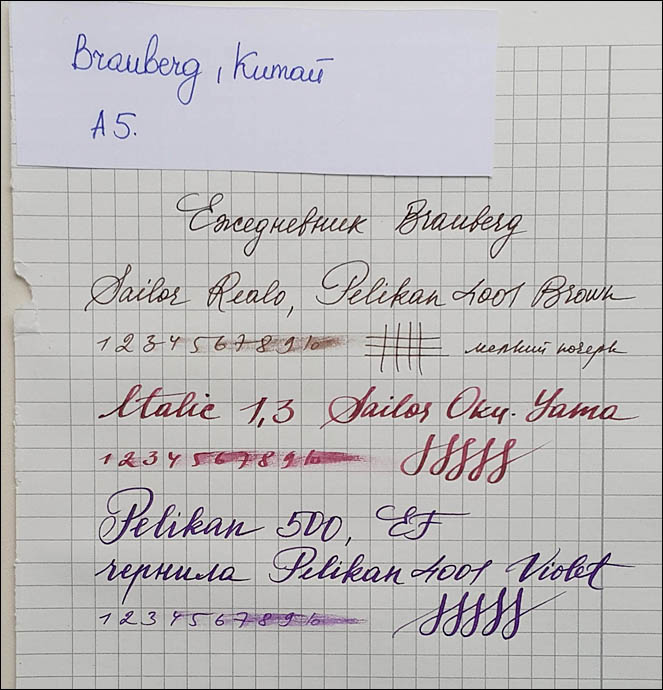 Brauberg, Китай
A5.
Ежедневник Brauberg
Sailor Realo, Pelikan 4001 Brown
1 2 3 4 5 6 7 8 9 10 мелкий почерк
Italic 1,3 Sailor Oku-Yama
1 2 3 4 5 6 7 8 9 10
Pelikan 500, EF
чернила Pelikan 4001 Violet
1 2 3 4 5 6 7 8 9 10